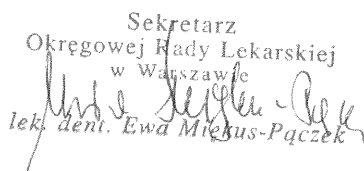 Sekretarz
Okręgowej Rady Lekarskiej
w Warszawie
lek. dent. Ewa Miękus-Pączek